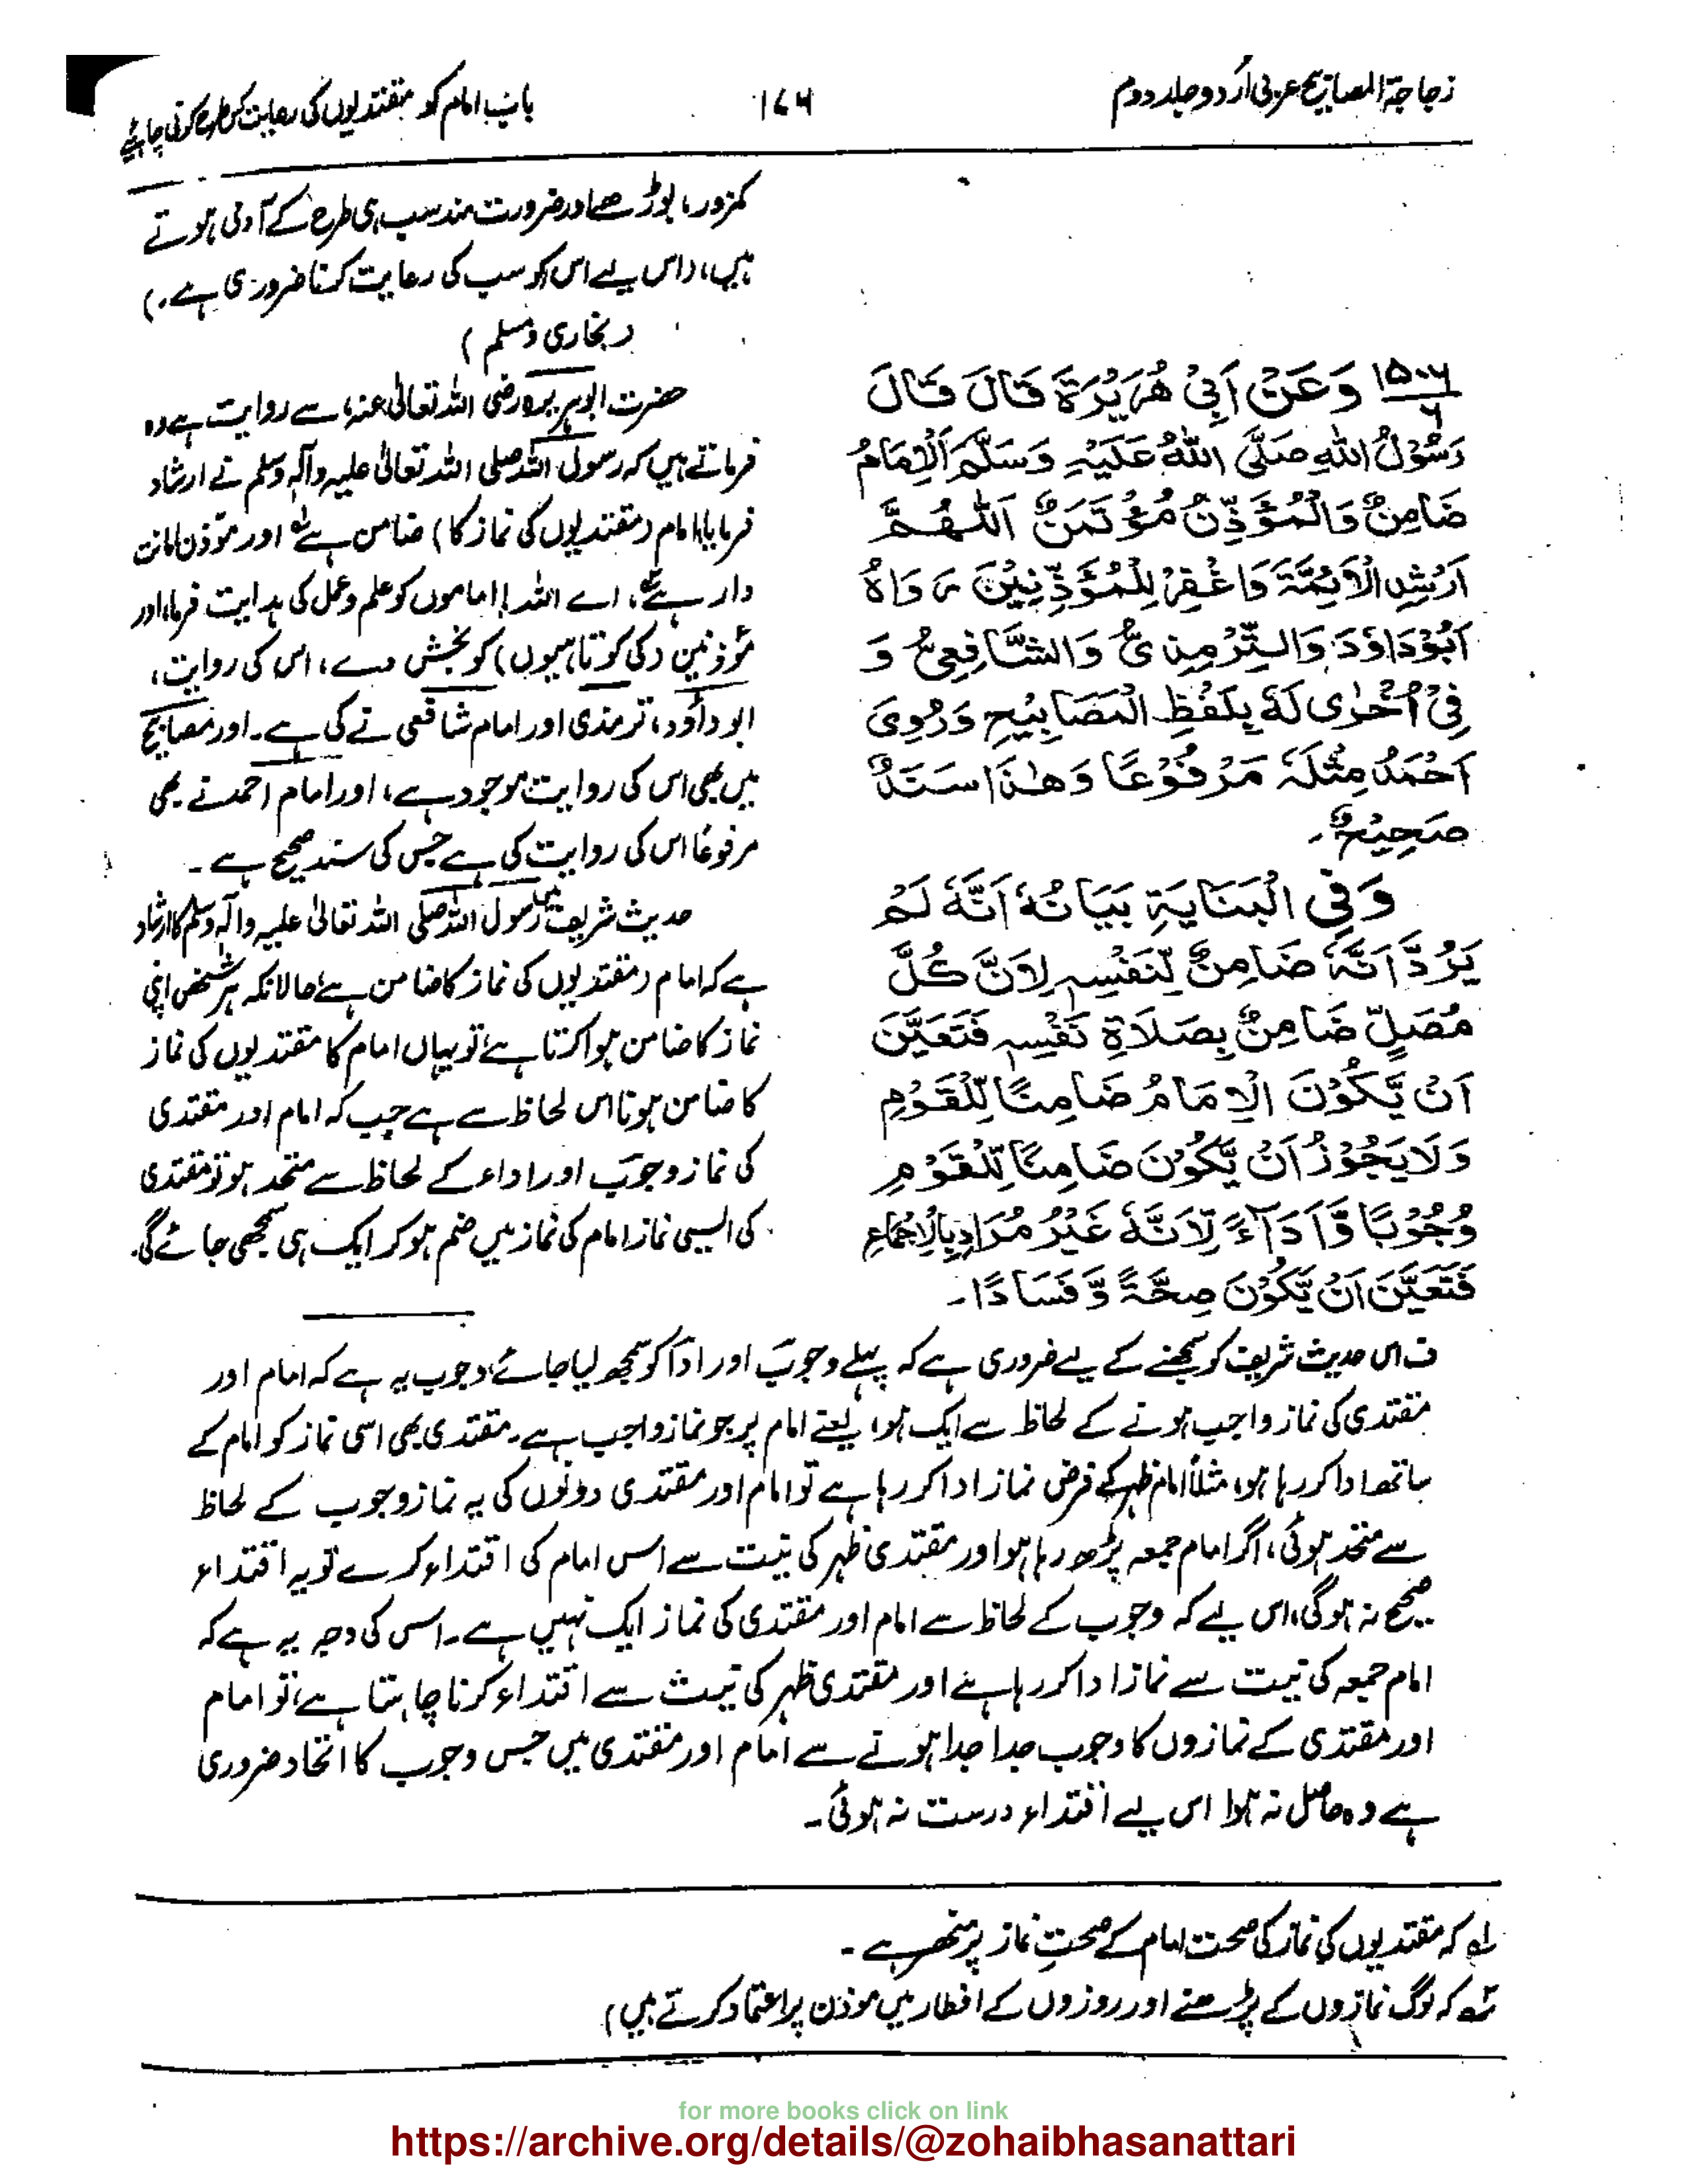 زجاجۃ المصابیح عربی اُردو جلد دوم
۱۷۶
باب امام کو مقتدیوں کی رعایت کس طرح کرنی چاہیئے
کمزور، بوڑھے اور ضرورت مند سب ہی طرح کے آدمی ہوتے
ہیں، (اس لیے اس کو سب کی رعایت کرنا ضروری ہے۔)
(بخاری و مسلم)
۱۵۰۶/۶ وَعَنْ اَبِیْ ھُرَیْرَۃَ قَالَ قَالَ
رَسُوْلُ اللّٰهِ صَلَّی اللّٰهُ عَلَیْهِ وَسَلَّمَ اَلْاِمَامُ
ضَامِنٌ وَالْمُؤَذِّنُ مُؤْتَمَنٌ اَللّٰھُمَّ
اَرْشِدِ الْاَئِمَّةَ وَاغْفِرْ لِلْمُؤَذِّنِیْنَ رَوَاهُ
اَبُوْدَاوٗدَ وَالتِّرْمِذِیُّ وَالشَّافِعِیُّ وَ
فِیْ اُخْرٰی لَهٗ بِلَفْظِ الْمَصَابِیْحِ وَرُوِیَ
اَحْمَدُ مِثْلَهٗ مَرْفُوْعًا وَھٰذَا سَنَدٌ
صَحِیْحٌ۔
وَفِی الْبَنَایَةِ بَیَانُهٗ اَنَّهٗ لَمْ
یَرُدَّ اَنَّهٗ ضَامِنٌ لِّنَفْسِهٖ لِاَنَّ كُلَّ
مُصَلٍّ ضَامِنٌ بِصَلَاةِ نَفْسِهٖ فَتَعَیَّنَ
اَنْ یَّكُوْنَ الْاِمَامُ ضَامِنًا لِّلْقَوْمِ
وَلَا یَجُوْزُ اَنْ یَّكُوْنَ ضَامِنًا لِّلْقَوْمِ
وُجُوْبًا وَّاَدَآءً لِّاَنَّهٗ غَیْرُ مُرَادٍ بِالْاِجْمَاعِ
فَتَعَیَّنَ اَنْ یَّكُوْنَ صِحَّةً وَّفَسَادًا۔
حضرت ابوہریرہ رضی اللہ تعالیٰ عنہ، سے روایت ہے وہ
فرماتے ہیں کہ رسول اللہ صلی اللہ تعالیٰ علیہ وآلہ وسلم نے ارشاد
فرمایا امام (مقتدیوں کی نماز کا) ضامن ہے لہ اور مؤذن امانت
دار ہے ٢، اے اللہ! اماموں کو علم و عمل کی ہدایت فرما، اور
مؤذنین (کی کوتاہیوں) کو بخش دے، اس کی روایت،
ابو داؤد، ترمذی اور امام شافعی نے کی ہے۔ اور مصابیح
میں بھی اس کی روایت موجود ہے، اور امام احمد نے بھی
مرفوعًا اس کی روایت کی ہے جس کی سند صحیح ہے۔
حدیث شریف میں رسول اللہ صلی اللہ تعالیٰ علیہ وآلہ وسلم کا ارشاد
ہے کہ امام (مقتدیوں کی نماز کا ضامن ہے، حالانکہ ہر شخص اپنی
نماز کا ضامن ہوا کرتا ہے، تو یہاں امام کا مقتدیوں کی نماز
کا ضامن ہونا اس لحاظ سے ہے جب کہ امام اور مقتدی
کی نماز وجوب اور اداء کے لحاظ سے متحد ہو تو مقتدی
کی ایسی نماز امام کی نماز میں ضم ہو کر ایک ہی سمجھی جائے گی۔
ف اس حدیث شریف کو سمجھنے کے لیے ضروری ہے کہ پہلے وجوب اور ادا کو سمجھ لیا جائے، وجوب یہ ہے کہ امام اور
مقتدی کی نماز واجب ہونے کے لحاظ سے ایک ہو، یعنے امام پر جو نماز واجب ہے۔ مقتدی بھی اسی نماز کو امام کے
ساتھ ادا کر رہا ہو، مثلاً امام ظہر کے فرض نماز ادا کر رہا ہے تو امام اور مقتدی دونوں کی یہ نماز وجوب کے لحاظ
سے متحد ہوئی، اگر امام جمعہ پڑھ رہا ہو اور مقتدی ظہر کی نیت سے اس امام کی اقتداء کرے تو یہ اقتداء
صحیح نہ ہوگی، اس لیے کہ وجوب کے لحاظ سے امام اور مقتدی کی نماز ایک نہیں ہے۔ اس کی وجہ یہ ہے کہ
امام جمعہ کی نیت سے نماز ادا کر رہا ہے اور مقتدی ظہر کی نیت سے اقتداء کرنا چاہتا ہے، تو امام
اور مقتدی کے نمازوں کا وجوب جدا جدا ہونے سے امام اور مقتدی میں جس وجوب کا اتحاد ضروری
ہے وہ حاصل نہ ہوا اس لیے اقتداء درست نہ ہوئی۔
لہ کہ مقتدیوں کی نماز کی صحت امام کے صحتِ نماز پر منحصر ہے۔
٢ہ کہ لوگ نمازوں کے پڑھنے اور روزوں کے افطار میں موذن پر اعتماد کرتے ہیں)
for more books click on link
https://archive.org/details/@zohaibhasanattari